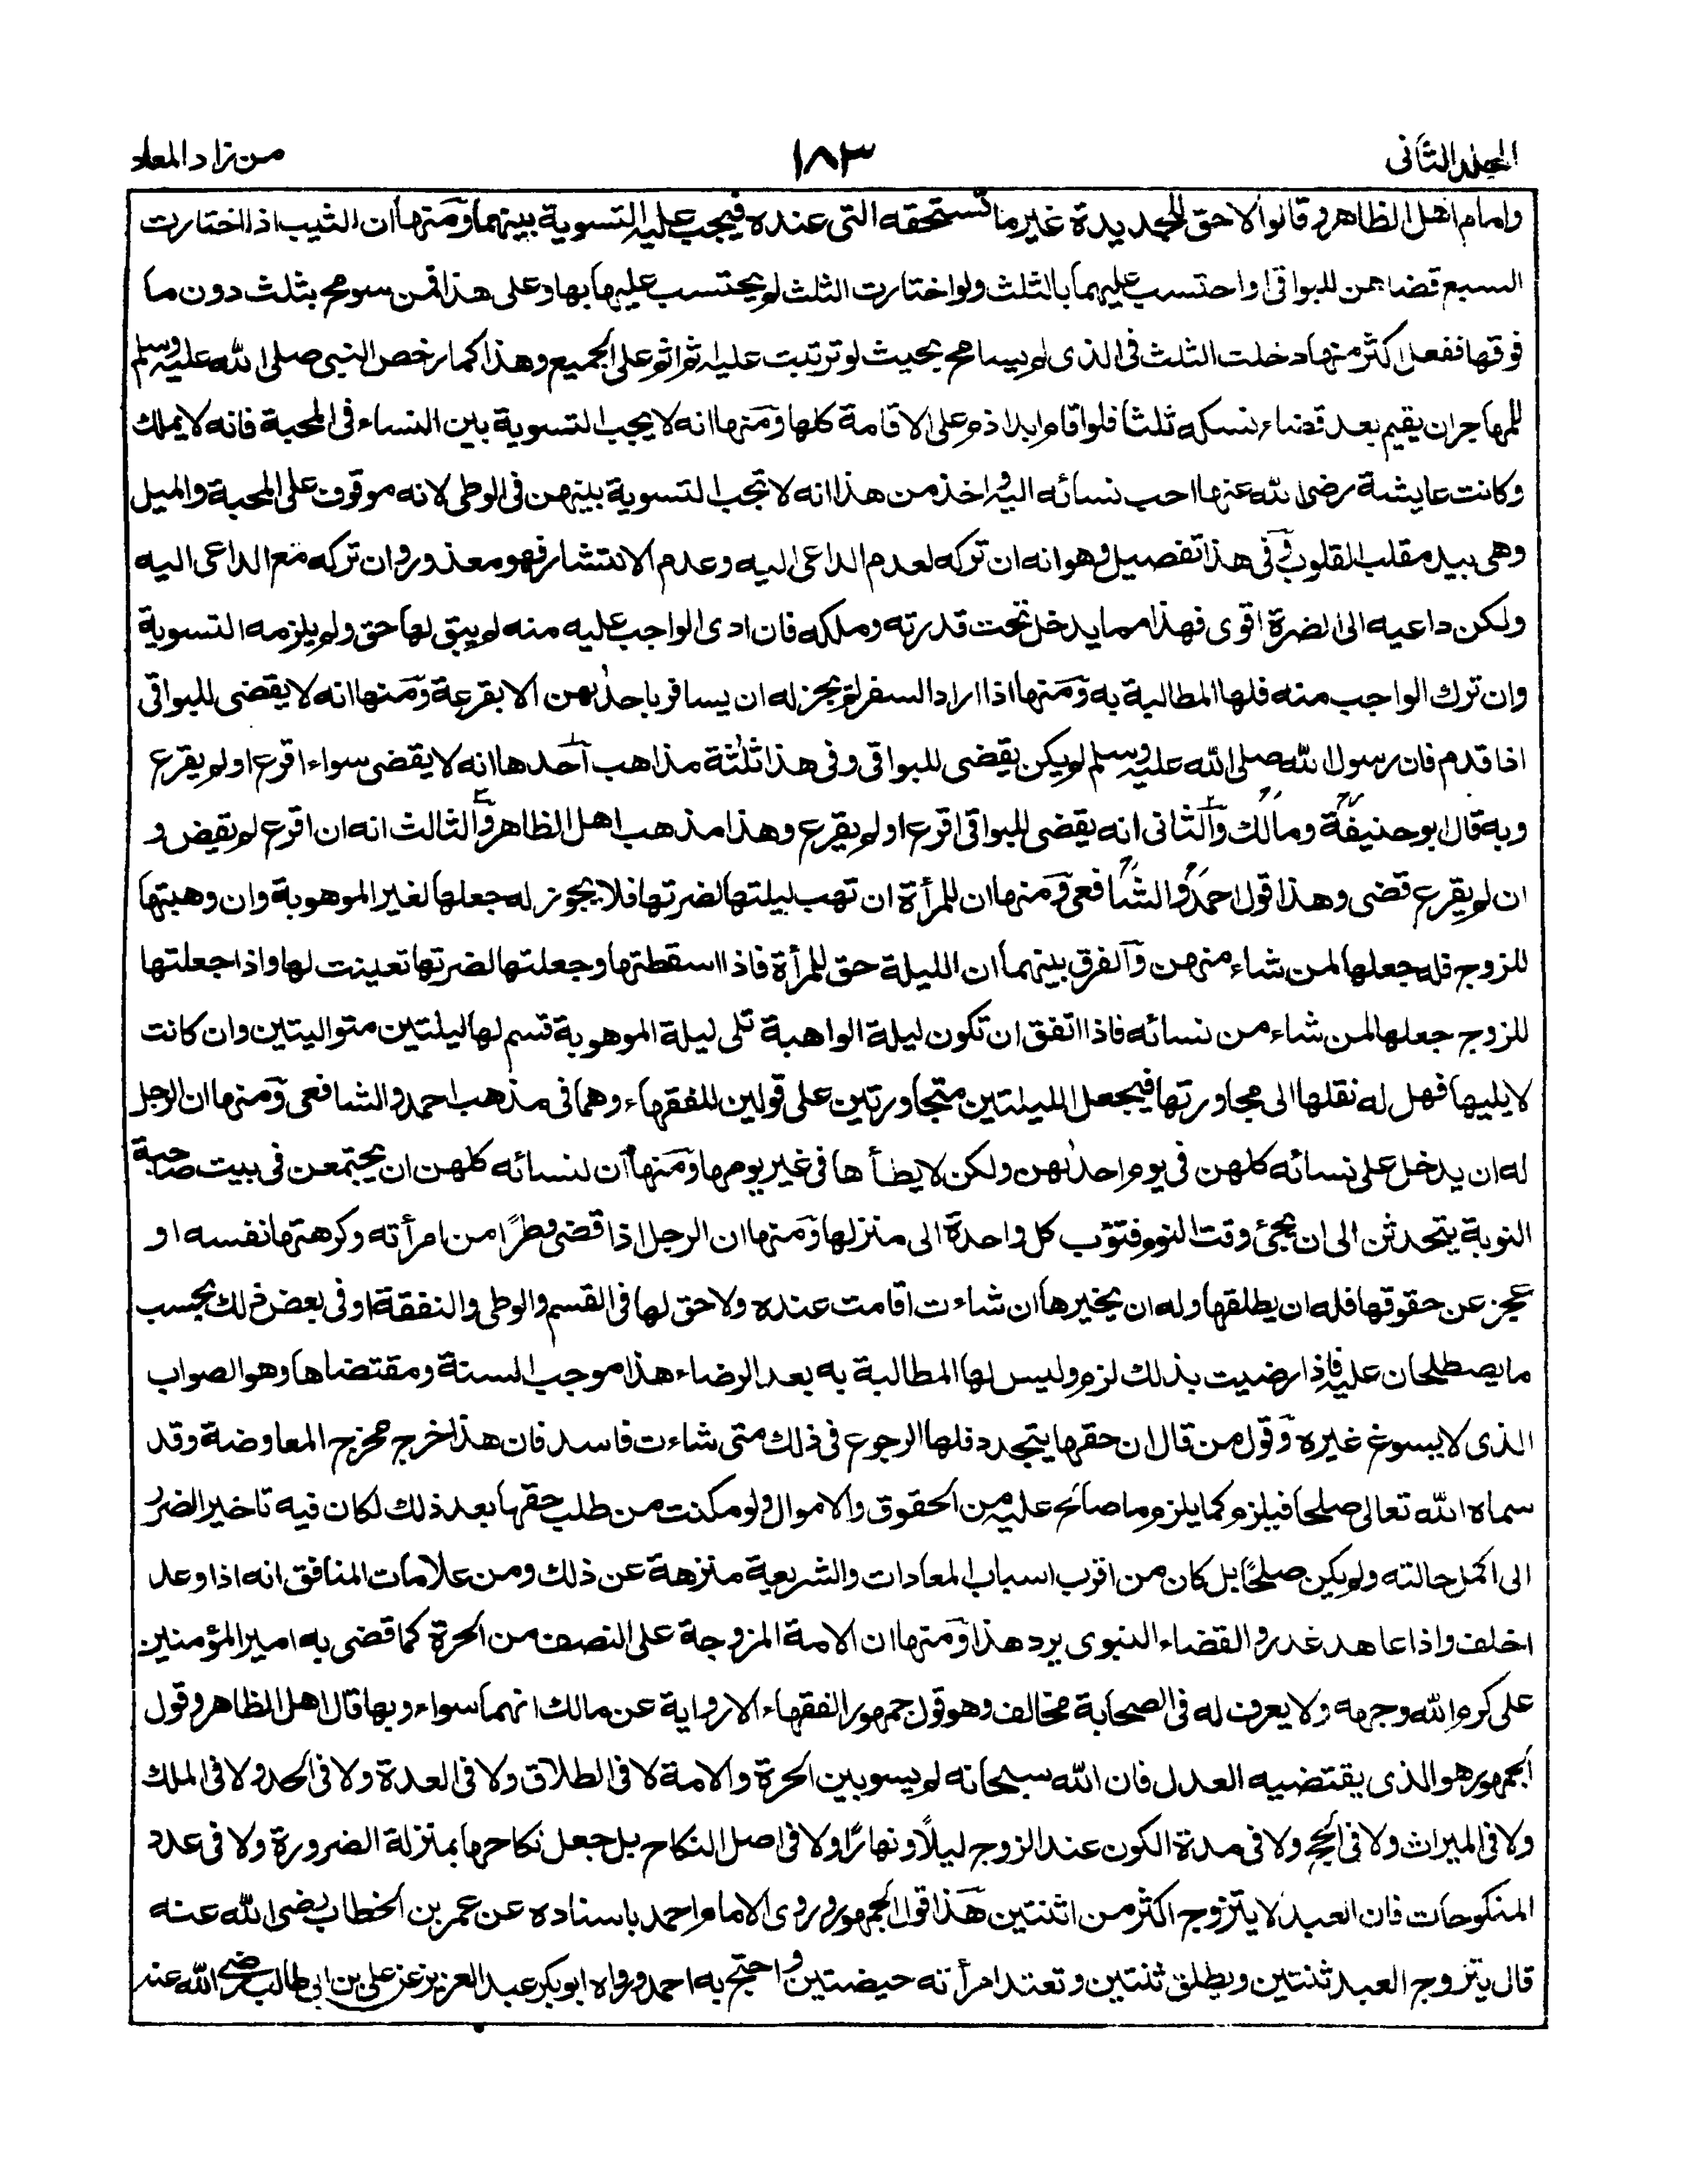 المجلد الثانى
١٨٣
من زاد المعاد
وامام اهل الظاهر وقالوا لا حق للجديدة غير ما تستحقه التى عنده فيجب عليه التسوية بينهما ومنها ان الثيب اذا اختارت
السبع قضاهن للبواقى واحتسب عليهما بالثلث ولو اختارت الثلث لم يحتسب عليها بها وعلى هذا فمن سومح بثلث دون ما
فوقها ففعل اكثر منها دخلت الثلث فى الذى لم يسامح بحيث لو ترتبت عليه اثم اثم على الجميع وهذا كما رخص النبى صلى الله عليه وسلم
للمهاجر ان يقيم بعد قضاء نسكه ثلثا فلو اقام ابدا ذم على الاقامة كلها ومنها انه لا يجب التسوية بين النساء فى المحبة فانه لا يملك
وكانت عايشة رضى الله عنها احب نسائه اليه واخذ من هذا انه لا تجب التسوية بينهن فى الوطى لانه موقوف على المحبة والميل
وهى بيد مقلب القلوب وفى هذا تفصيل وهو انه ان تركه لعدم الداعى اليه وعدم الانتشار فهو معذور وان تركه مع الداعى اليه
ولكن داعيه الى الضرة اقوى فهذا مما يدخل تحت قدرته وملكه فان ادى الواجب عليه منه لم يبق لها حق ولم يلزمه التسوية
وان ترك الواجب منه فلها المطالبة به ومنها اذا اراد السفر لم يجز له ان يسافر باحدٰهن الا بقرعة ومنها انه لا يقضى للبواقى
اذا قدم فان رسول الله صلى الله عليه وسلم لم يكن يقضى للبواقى وفى هذا ثلثة مذاهب احدها انه لا يقضى سواء اقرع او لم يقرع
وبه قال ابو حنيفة ومالك والثانى انه يقضى للبواقى اقرع او لم يقرع وهذا مذهب اهل الظاهر والثالث انه ان اقرع لم يقض و
ان لم يقرع قضى وهذا قول احمد والشافعى ومنها ان للمرأة ان تهب ليلتها لضرتها فلا يجوز له جعلها لغير الموهوبة وان وهبتها
للزوج فله جعلها لمن شاء منهن والفرق بينهما ان الليلة حق للمرأة فاذا اسقطتها وجعلتها لضرتها تعينت لها واذا جعلتها
للزوج جعلها لمن شاء من نسائه فاذا اتفق ان تكون ليلة الواهبة تلى ليلة الموهوبة قسم لها ليلتين متواليتين وان كانت
لا يليها فهل له نقلها الى مجاورتها فيجعل الليلتين متجاورتين على قولين للفقهاء وهما فى مذهب احمد والشافعى ومنها ان الرجل
له ان يدخل على نسائه كلهن فى يوم احدٰهن ولكن لا يطأ ها فى غير يومها ومنها ان لنسائه كلهن ان يجتمعن فى بيت صاحبة
النوبة يتحدثن الى ان يجئ وقت النوم فتؤب كل واحدة الى منزلها ومنها ان الرجل اذا قضى وطرًا من امرأته وكرهتها نفسه او
عجز عن حقوقها فله ان يطلقها وله ان يخيرها ان شاءت اقامت عنده ولا حق لها فى القسم والوطى والنفقة او فى بعض ذلك بحسب
ما يصطلحان عليه فاذا رضيت بذلك لزم وليس لها المطالبة به بعد الرضاء هذا موجب السنة ومقتضاها وهو الصواب
الذى لا يسوغ غيره وقول من قال ان حقها يتجدد فلها الرجوع فى ذلك متى شاءت فاسد فان هذا خرج مخرج المعاوضة وقد
سماه الله تعالى صلحا فيلزم كما يلزم ما صالح عليه من الحقوق والاموال ولو مكنت من طلب حقها بعد ذلك لكان فيه تاخير الضرر
الى اكمل حالته ولم يكن صلحًا بل كان من اقرب اسباب المعادات والشريعة منزهة عن ذلك ومن علامات المنافق انه اذا وعد
اخلف واذا عاهد غدر والقضاء النبوى يرد هذا ومنها ان الامة المزوجة على النصف من الحرة كما قضى به امير المؤمنين
على كرم الله وجهه ولا يعرف له فى الصحابة مخالف وهو قول جمهور الفقهاء الا رواية عن مالك انهما سواء وبها قال اهل الظاهر وقول
الجمهور هو الذى يقتضيه العدل فان الله سبحانه لم يسو بين الحرة والامة لا فى الطلاق ولا فى العدة ولا فى الحد ولا فى الملك
ولا فى الميراث ولا فى الحج ولا فى مدة الكون عند الزوج ليلًا ونهارًا ولا فى اصل النكاح بل جعل نكاحها بمنزلة الضرورة ولا فى عدد
المنكوحات فان العبد لا يتزوج اكثر من اثنتين هذا قول الجمهور وروى الامام احمد باسناده عن عمر بن الخطاب رضى الله عنه
قال يتزوج العبد ثنتين ويطلق ثنتين وتعتد امرأته حيضتين واحتج به احمد ورواه ابو بكر عبد العزيز عن على بن ابى طالب رضى الله عنه